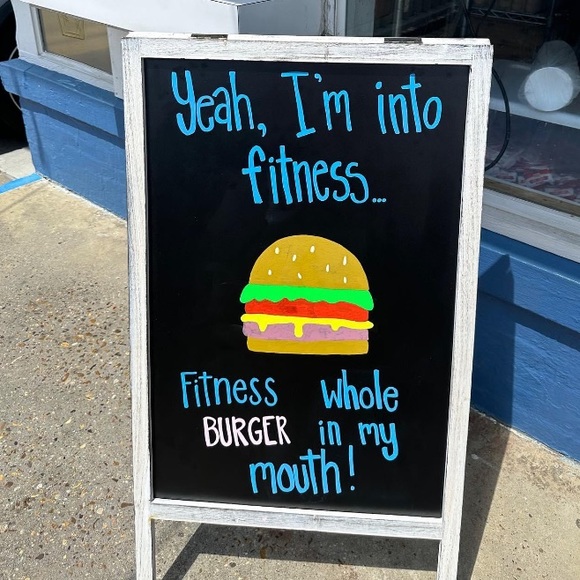 Yeah, I'm into
fitness...
Fitness whole
BURGER in my
mouth!